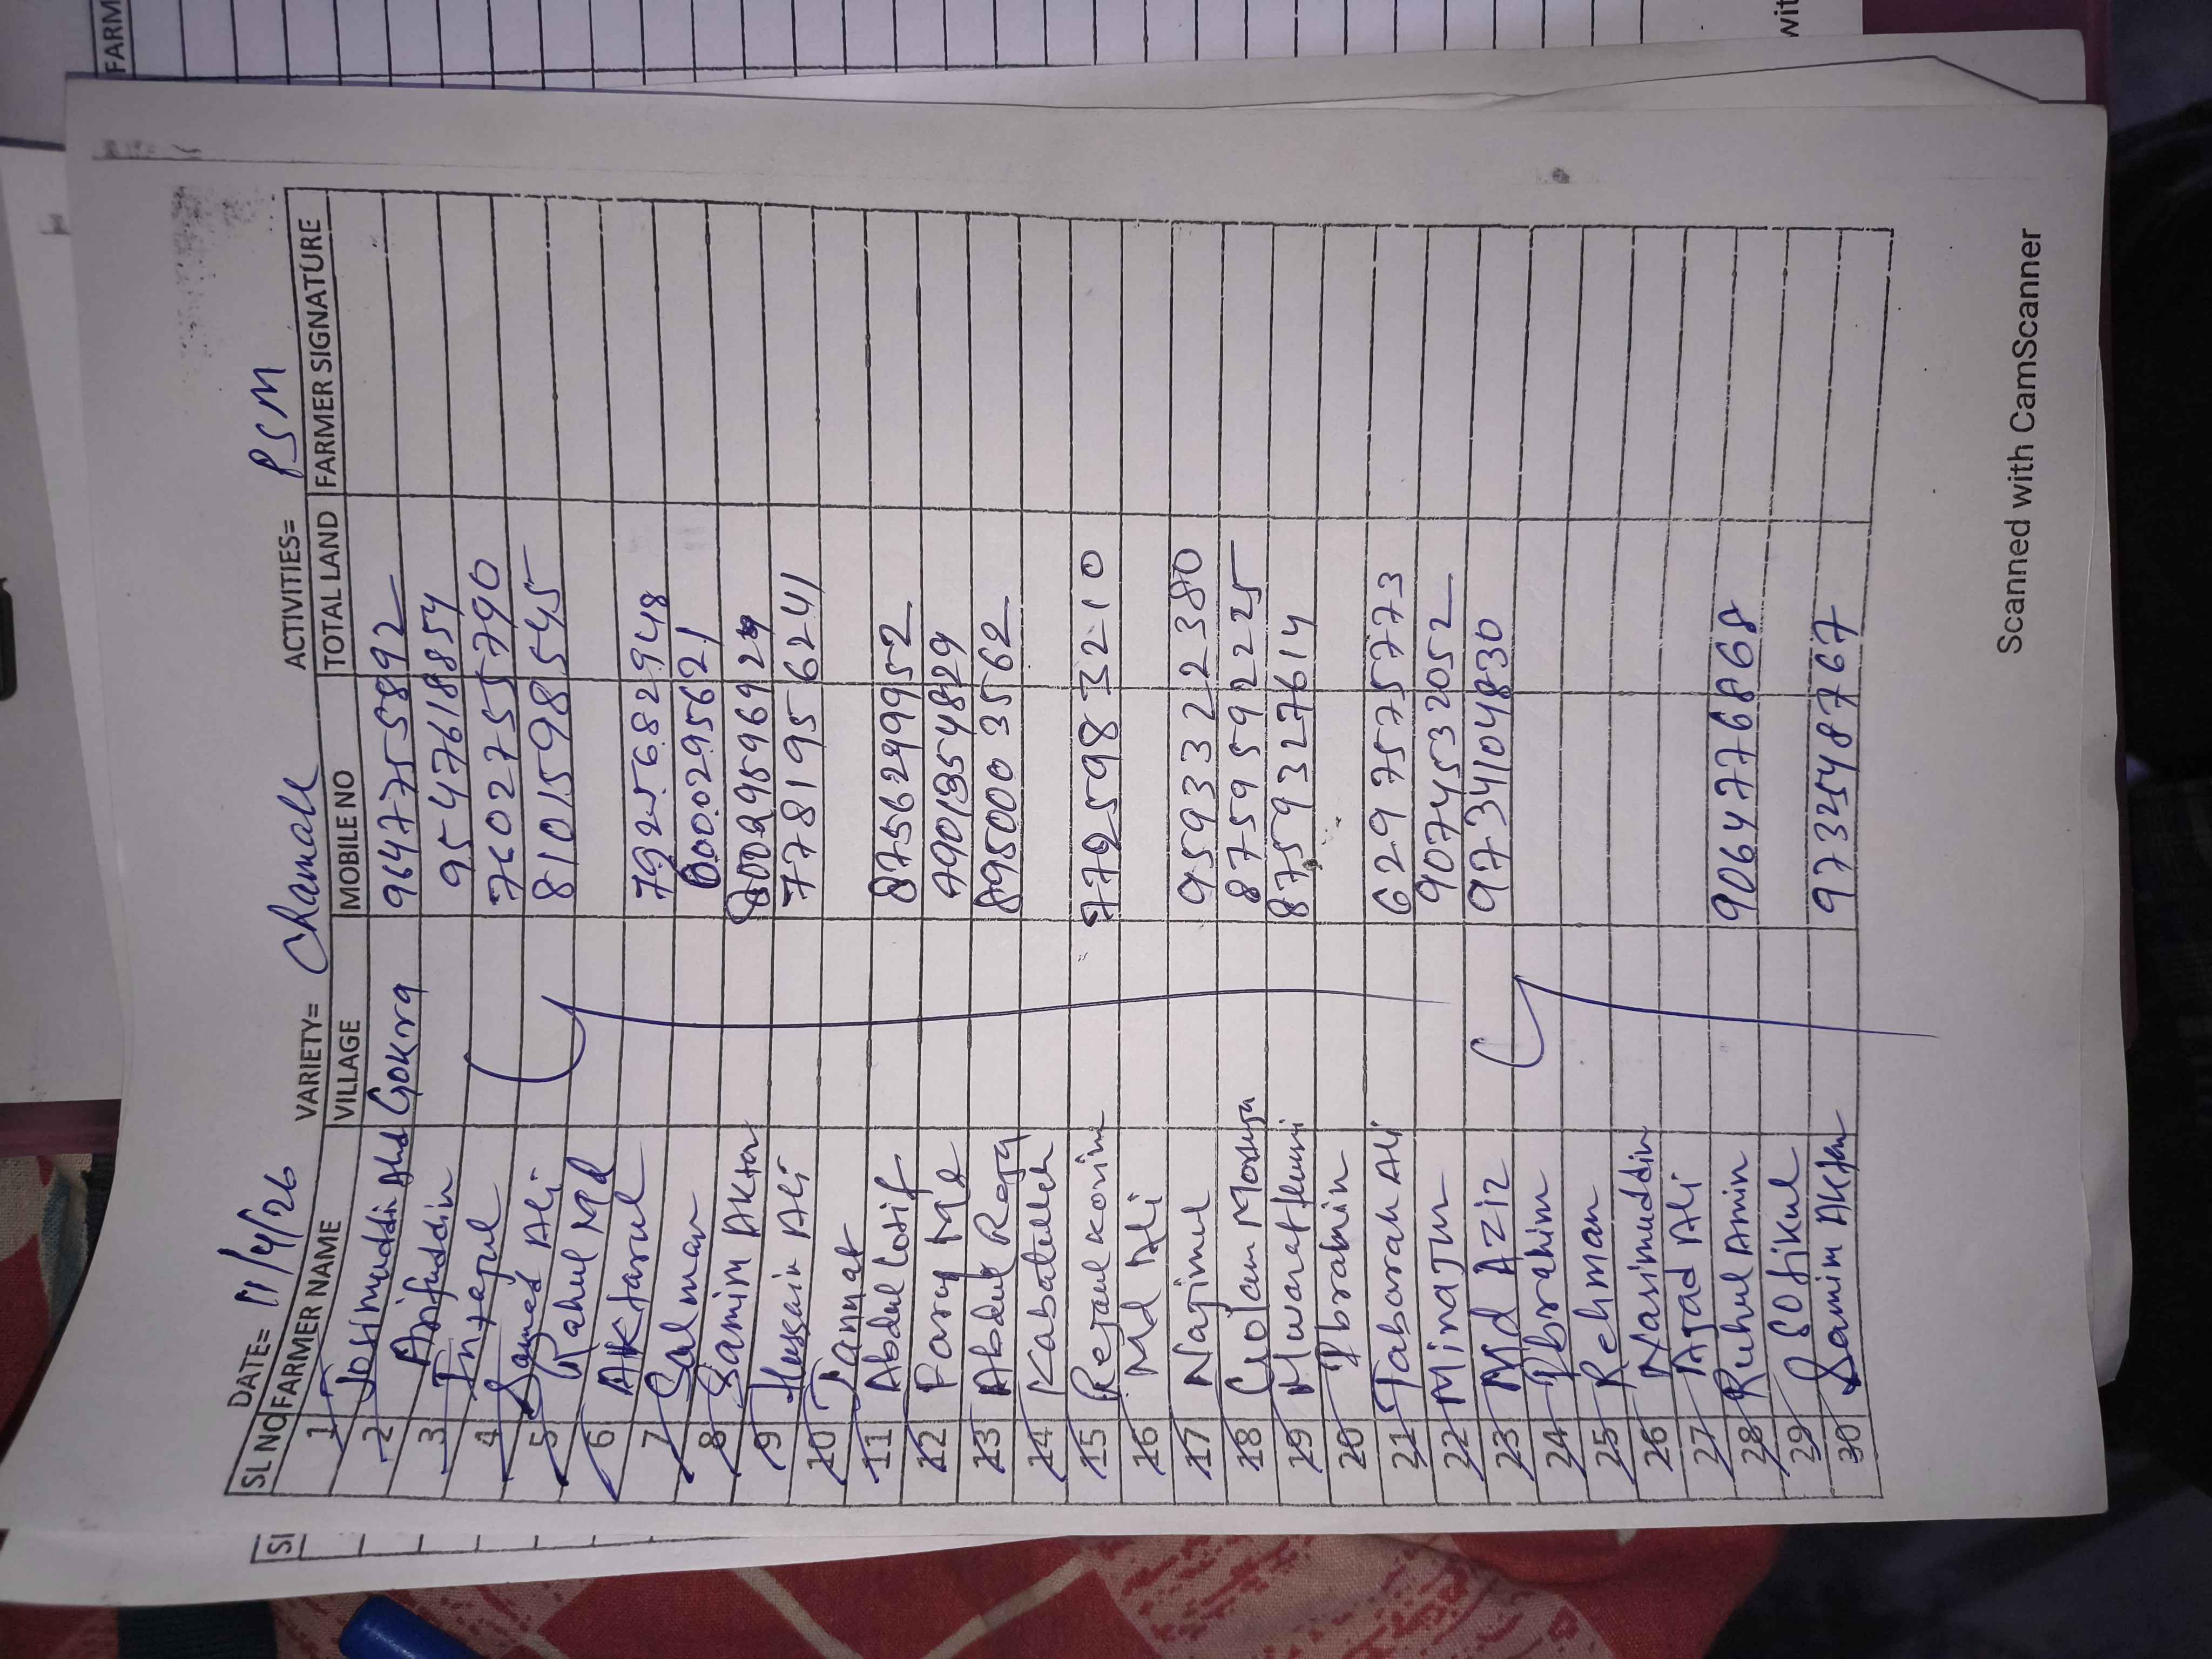 DATE= 11/4/26 VARIETY= Chamak ACTIVITIES= PSM
SL NO FARMER NAME VILLAGE MOBILE NO TOTAL LAND FARMER SIGNATURE
1 Josimuddin Ahd Gokra 9647755892
2 Arifuddin 9547618854
3 7602755790
4 Samed Ali 8101598545
5 Rahul Md
6 AKtarul 7925682948
7 Salman 000295621
8 Samim AKtar
9 Hussain Ali 7781956241
10 Jannat
11 Abdul 8756299952
12 Md
13 Abdul Reja 8950003562
14
15 Rejaul Korim
16 Md Ali
17 Najimul 9593322380
18 Golam 8759592225
19 8759327614
20 Ibrahim
21 Tabarak Ali 6297575773
22 Minajur 9074532052
23 Md Aziz 9734104830
24 Ibrahim
25 Rehman
26 Nasimuddin
27 Ajad Ali
28 Ruhul Amin 9064776868
29 Sofikul
30 Samim AKtar 9732548767
Scanned with CamScanner
SI
FARM
wit